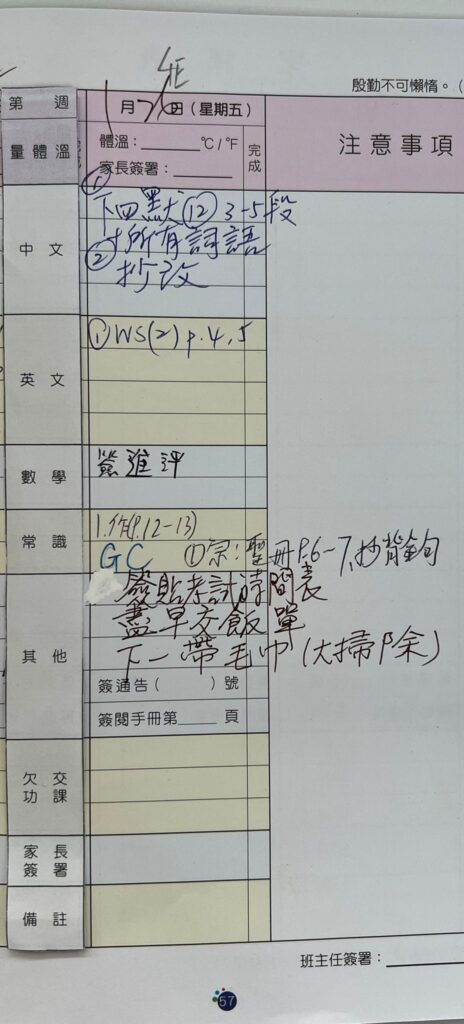 殷勤不可懶惰。(
4E
第 週
1月7日(星期五)
完成
注意事項
量體溫
體溫:______°C/°F
家長簽署:______
中文
① 下四默⑫ 3-5段
+所有詞語
② 抄改
英文
① WS(2) p.4,5
數學
簽進評
常識
1.作(P.12-13)
GC ①宗:聖冊P.6-7,抄背金句
其他
簽貼考試時間表
盡早交飯單
下一帶毛巾(大掃除)
簽通告( )號
簽閱手冊第____頁
欠交功課
家長簽署
備註
班主任簽署:
57